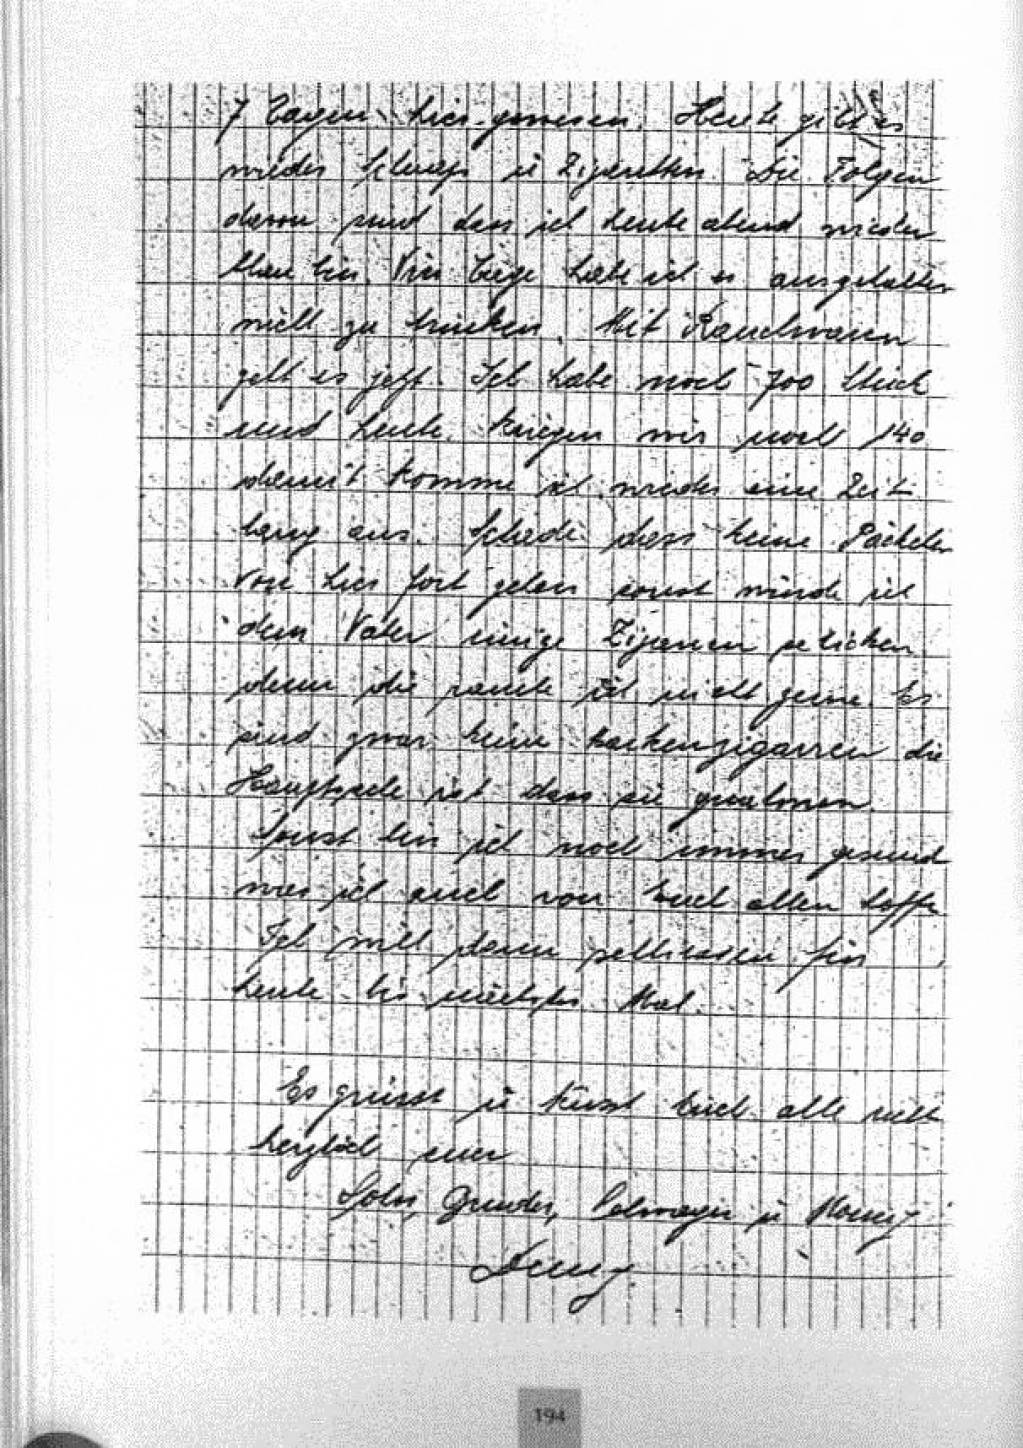 7 Tagen hier gewesen. Heute gibt es
wieder Schnaps u Zigaretten. Die Folgen
davon sind dass ich heute abend wieder
blau bin. Vier Tage habe ich es ausgehalten
nicht zu trinken. Mit Rauchwaren
geht es jetzt. Ich habe noch 700 Stück
und heute kriegen wir noch 140
damit komme ich wieder eine Zeit
lang aus. Schade dass keine Päckchen
von hier fort gehen sonst würde ich
dem Vater einige Zigarren schicken
denn die rauche ich nicht gerne. Es
sind zwar keine zigarren die
Hauptsache ist dass sie qualmen.
Sonst bin ich noch immer gesund
was ich auch von Euch allen hoffe.
Ich will dann schliessen für
heute bis nächstes Mal.
Es grüsst u küsst Euch alle recht
herzlich euer
Sohn, Bruder, Schwager u
194